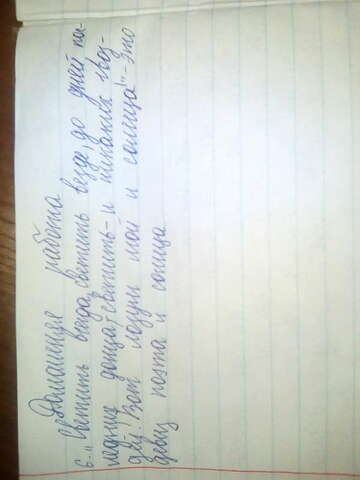 Домашняя работа
6-„Светить всегда, светить везде, до дней по-
ледних донца, светить- и никаких гвоз-
дей! Вот лозунг мой и солнца!"-это
девиз поэта и солнца